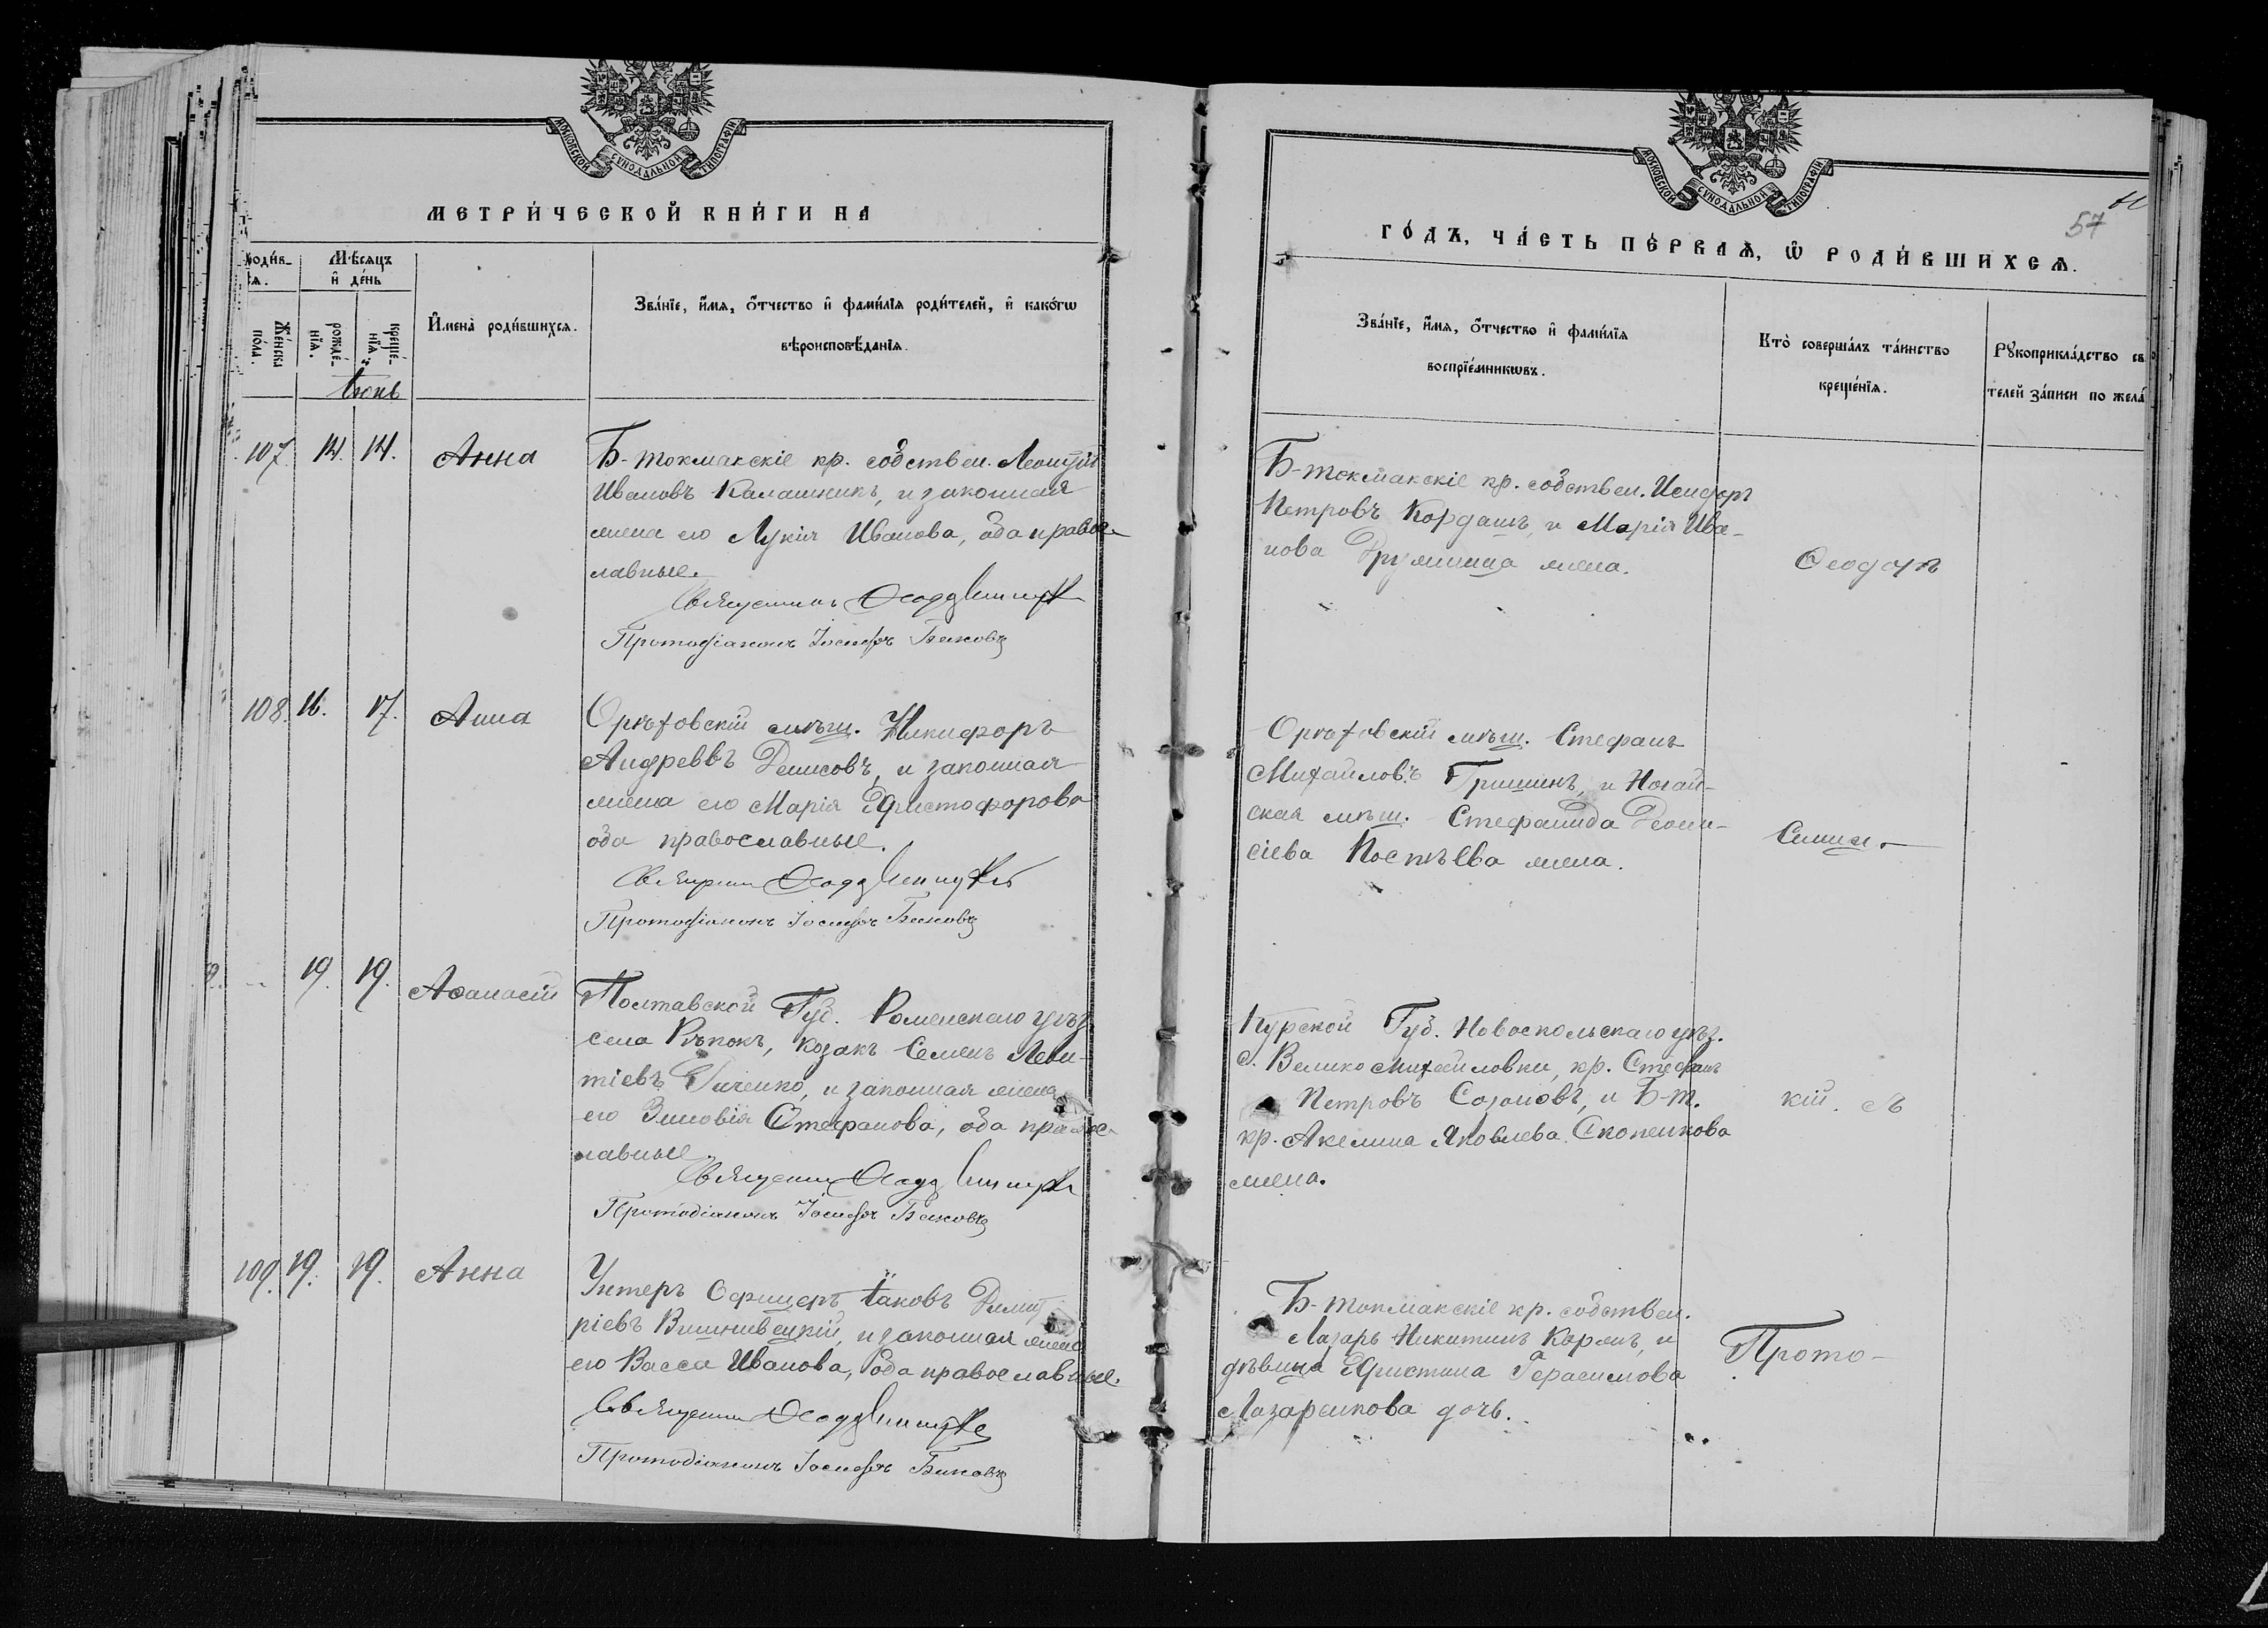 МОСКОВСКОЙ СѴНОДАЛЬНОЙ ТИПОГРАФІИ
МЕТРИ́ЧЕСКОЙ КНИ́ГИ НА
Мѣ́сяцъ и҆ де́нь
Же́нска по́ла.
рожде́нїя.
креще́нїя.
И҆мена̀ роди́вшихся.
Зва́нїе, и҆́мя, ѻ҆́тчество и҆ фами́лїя роди́телей, и҆ како́гѡ
вѣроисповѣ́данїя.
Іюнь
107. 14. 14. Анна
Б-токмакскіе кр. собствен. Леонтій
Ивановъ Калашникъ, и законная
жена его Лукія Иванова, оба правос-
лавные.
Священникъ
Протодіаконъ Іосифъ Быковъ
108. 16. 17. Анна
Орѣховскій мѣщ. Никифоръ
Андреевъ Денисовъ, и законная
жена его Марія Христофорова
оба православные.
Священник
Протодіаконъ Іосифъ Быковъ
19. 19. Аѳанасій
Полтавской Губ. Роменскаго уѣз.
села Рѣпокъ, козакъ Семенъ Леон-
тіевъ и законная жена
его Зиновія Стефанова, оба правос-
лавные.
Священник
Протодіаконъ Іосифъ Быковъ
109. 19. 19. Анна
Унтеръ Офицеръ Іаковъ Димит
ріевъ Вишнивецкій, и законная жена
его Васса Иванова, оба православные.
Священник
Протодіаконъ Іосифъ Быковъ
МОСКОВСКОЙ СѴНОДАЛЬНОЙ ТИПОГРАФІИ
57
ГО́ДЪ, ЧА́СТЬ ПЕ́РВАЯ, Ѡ҆ РОДИ́ВШИХСЯ.
Зва́нїе, и҆́мя, ѻ҆́тчество и҆ фами́лїя
воспрїе́мникѡвъ.
Кто̀ соверша́лъ та́инство
креще́нїя.
Рꙋкоприкла́дство св
телей за́писи по жела́
Б-токмакскіе кр. собствен. Исидоръ
Петровъ Кордашъ, и Марія Ива-
нова жена.
Ѳеодотъ
Орѣховскій мѣщ. Стефанъ
Михайловъ Гришинъ, и Ногай-
ская мѣщ. Стефанида Діони-
сіева жена.
Курской Губ. Новоскольскаго уѣз.
с. Велико Михайловки, кр. Стефанъ
Петровъ Созоновъ, и Б-т.
кр. Акелина Яковлева Скопенкова
жена.
кій. съ
Б-токмакскіе кр. собствен.
Лазарь Никитинъ и
дѣвица Христина Герасимова
Лазаренкова дочь.
Прото-